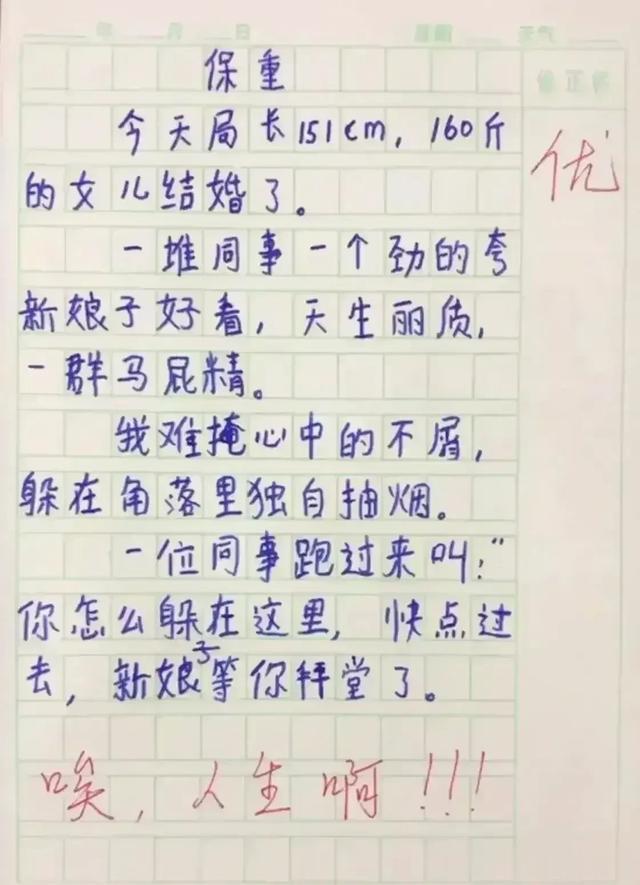 年 月 日 星期 天气
保重
修正栏
今天局长151cm，160斤
优
的女儿结婚了。
一堆同事一个劲的夸
新娘子好看，天生丽质，
一群马屁精。
我难掩心中的不屑，
躲在角落里独自抽烟。
一位同事跑过来叫：“
你怎么躲在这里，快点过
去，新娘子等你拜堂了。
唉，人生啊!!!